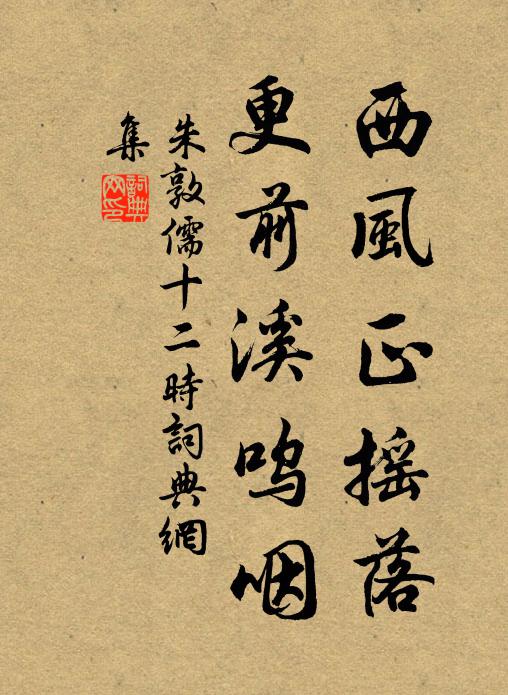 西風正搖落
更前溪嗚咽
朱敦儒十二時詞典網
集
詞典
网印